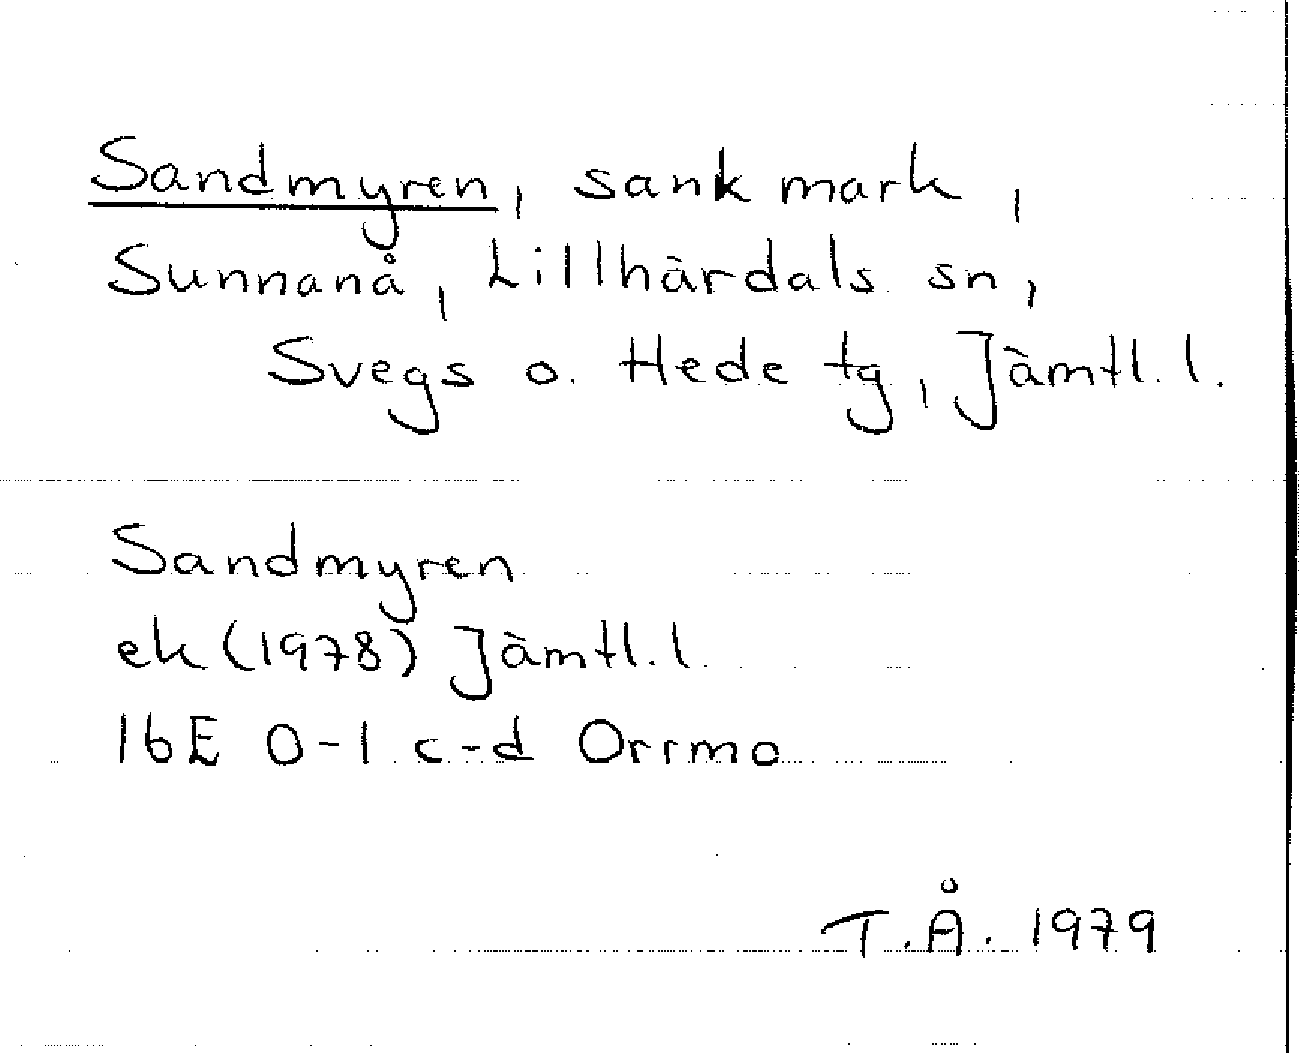 Sandmyren, sank mark,
Sunnanå, Lillhärdals sn,
Svegs o. Hede tg, Jämtl. l.
Sandmyren
ek (1978) Jämtl. l.
16E 0-1 c-d Orrmo
T.Å. 1979